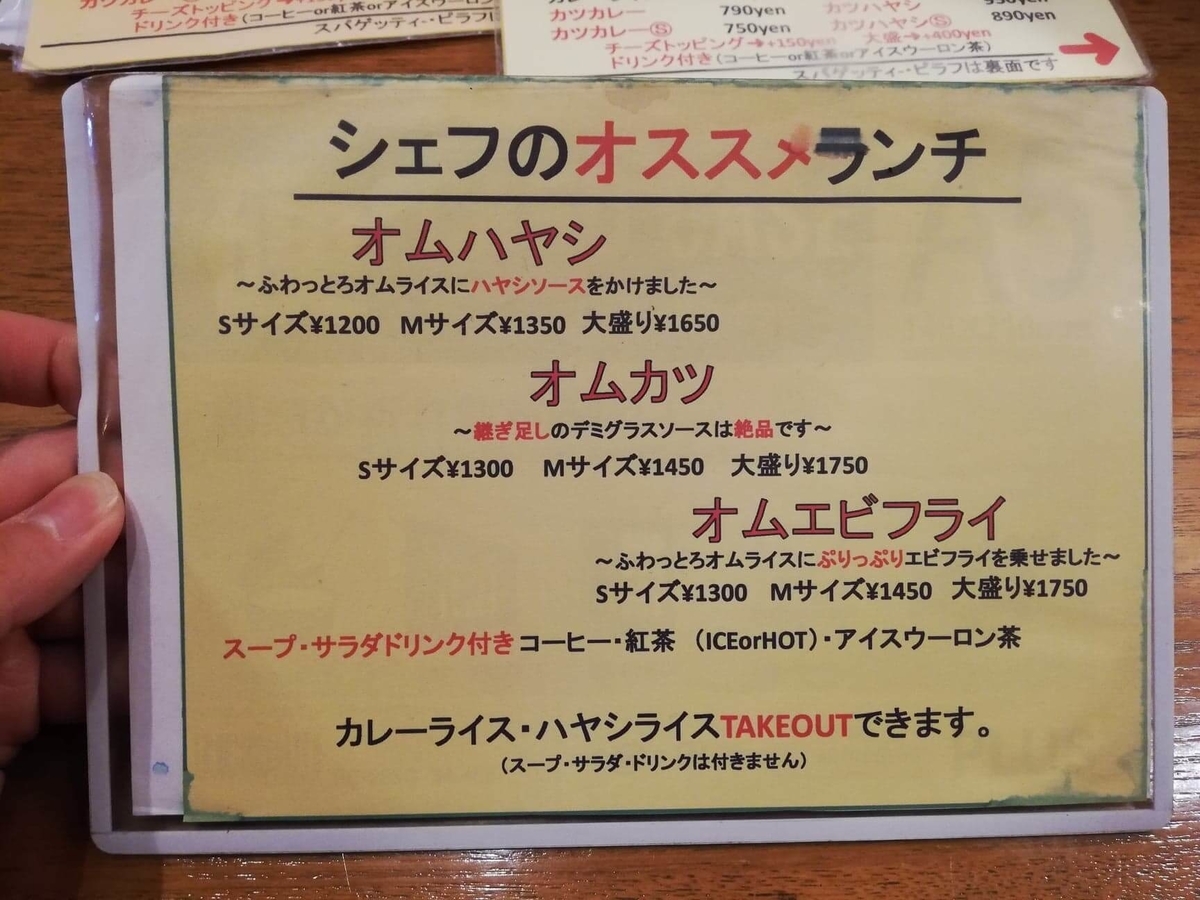 チーズトッピング→+15
ドリンク付き(コーヒーor紅茶orアイスウーロン
スパゲッティ・・ピラフは
カツカレー 790yen
カツカレーⓈ 750yen
チーズトッピング→+150yen
カツハヤシ 950yen
カツハヤシⓈ 890yen
大盛→+400yen
ドリンク付き(コーヒーor紅茶orアイスウーロン茶)
スパゲッティ・・ピラフは裏面です
シェフのオススメランチ
オムハヤシ
～ふわっとろオムライスにハヤシソースをかけました～
Sサイズ¥1200 Mサイズ¥1350 大盛り¥1650
オムカツ
～継ぎ足しのデミグラスソースは絶品です～
Sサイズ¥1300 Mサイズ¥1450 大盛り¥1750
オムエビフライ
～ふわっとろオムライスにぷりっぷりエビフライを乗せました～
Sサイズ¥1300 Mサイズ¥1450 大盛り¥1750
スープ・サラダドリンク付き コーヒー・紅茶 （ICEorHOT）・アイスウーロン茶
カレーライス・ハヤシライスTAKEOUTできます。
（スープ・サラダ・ドリンクは付きません）